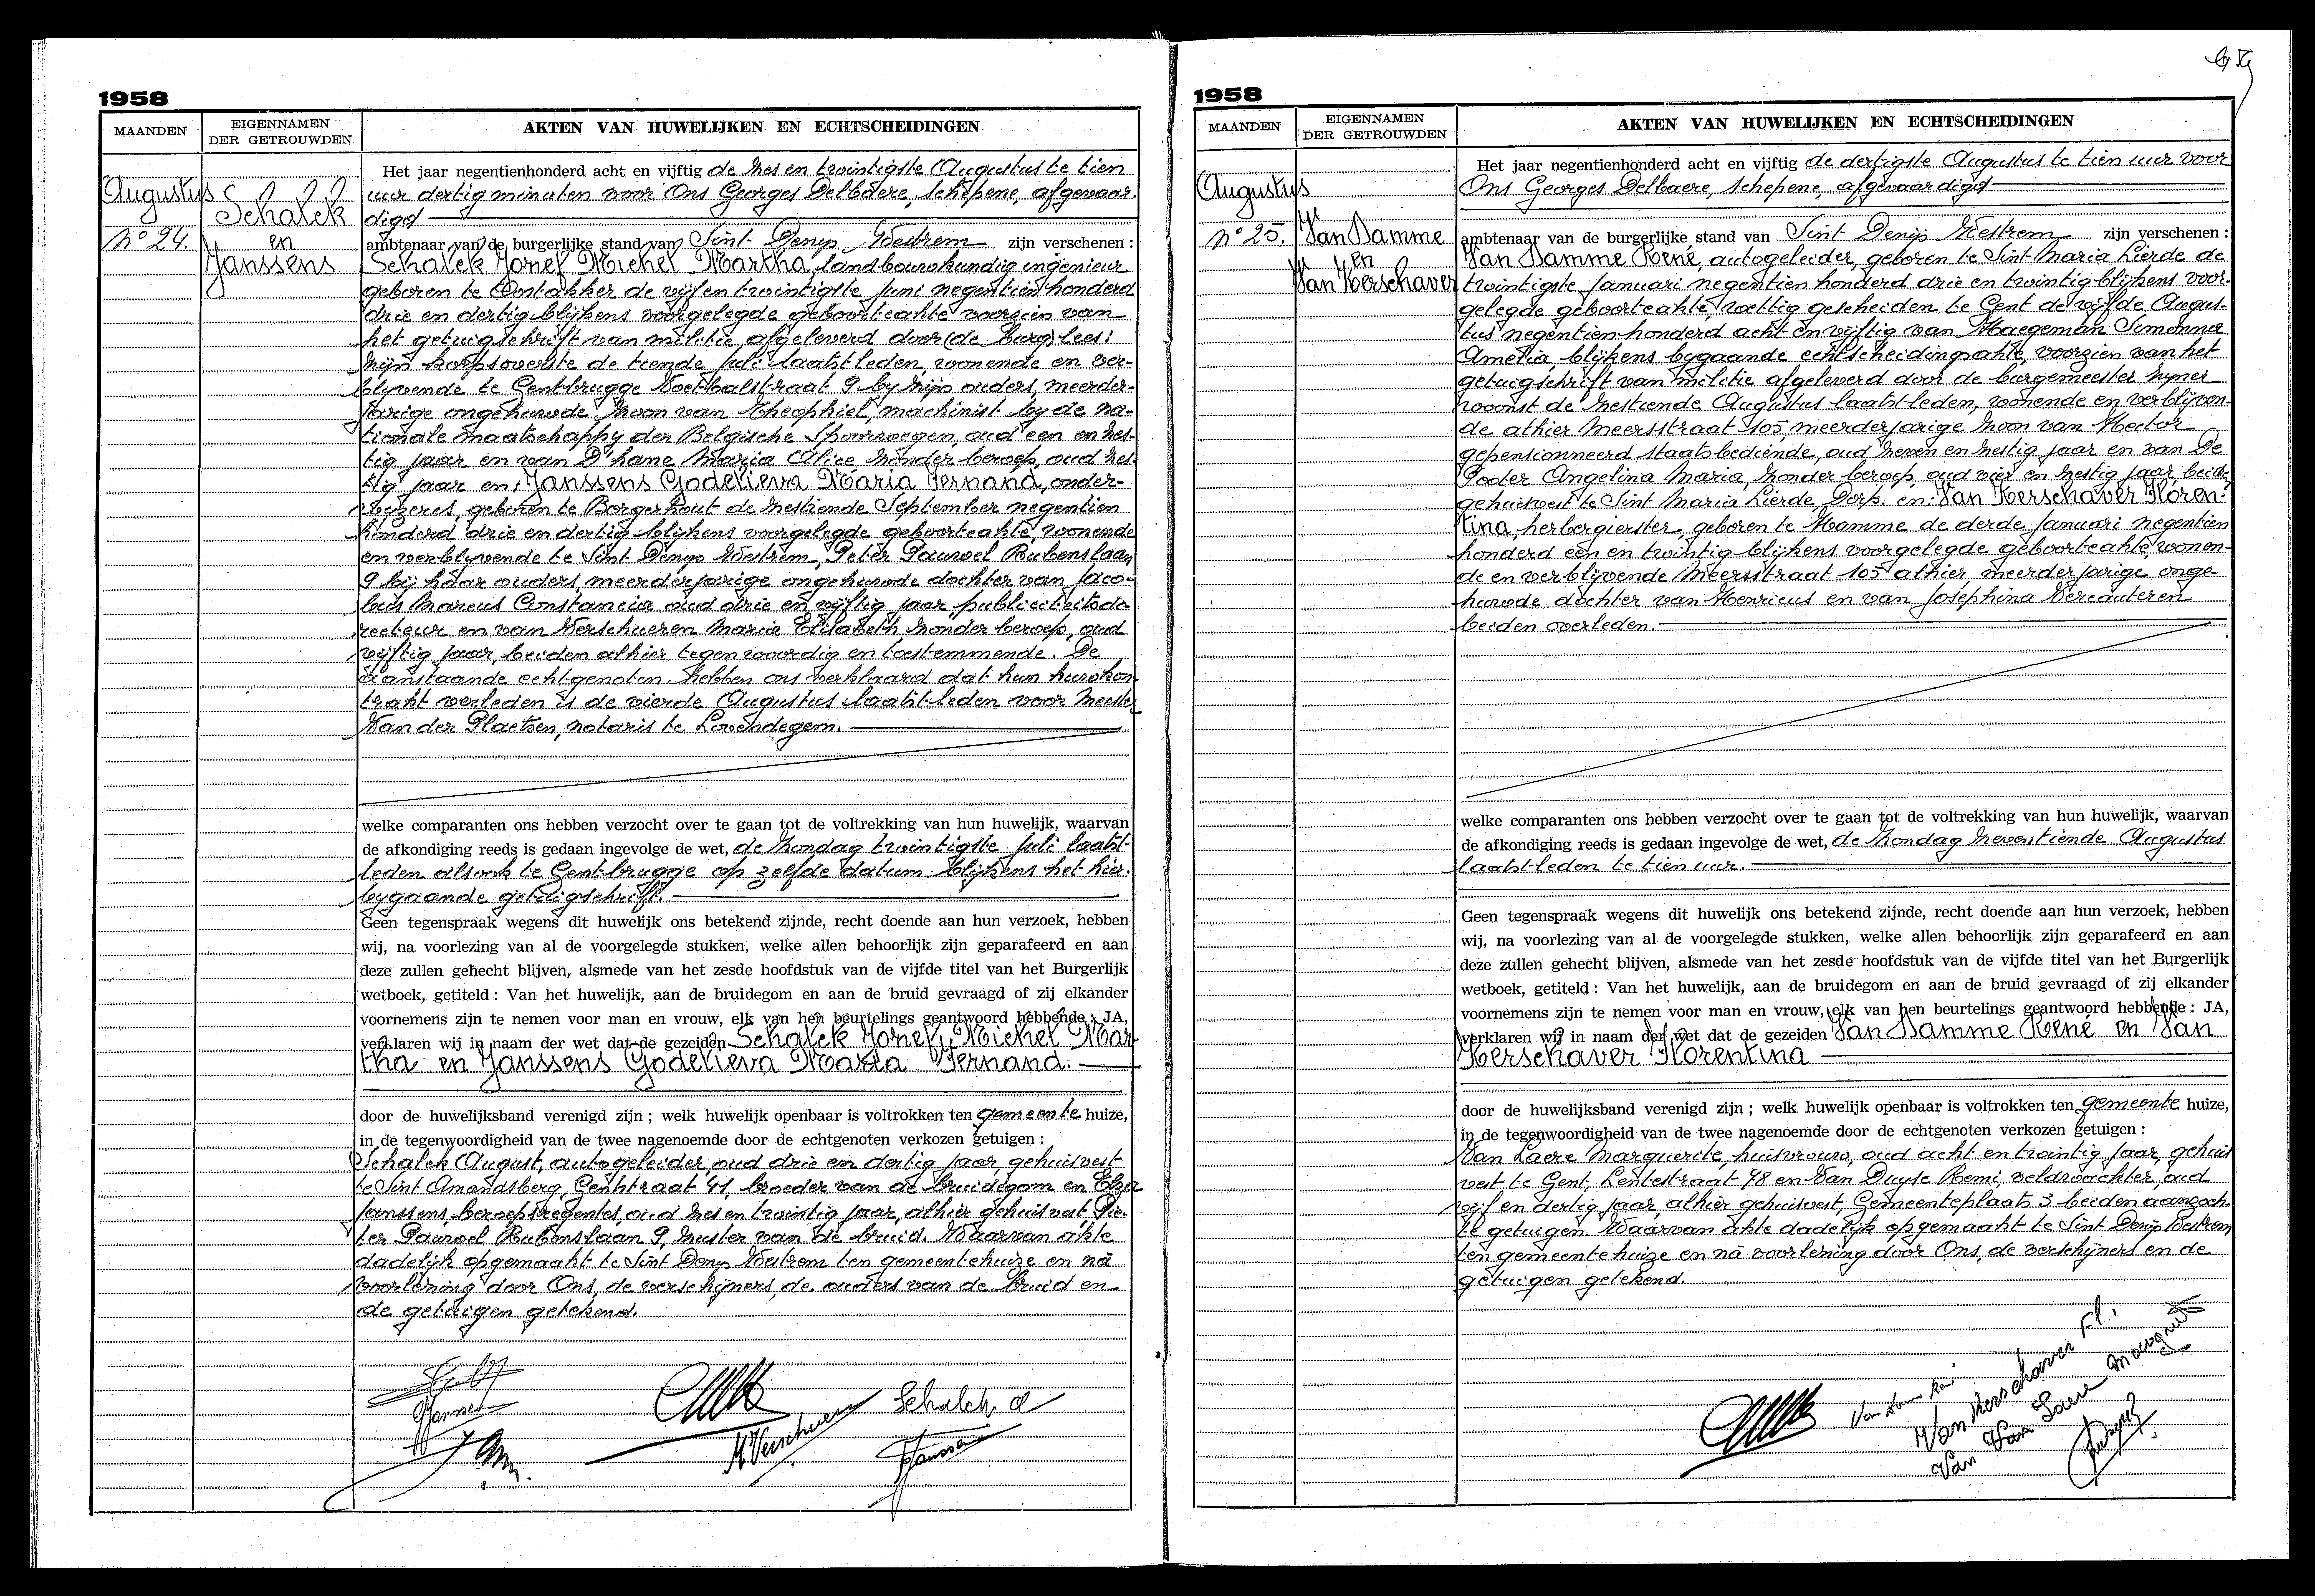 1958
MAANDEN
EIGENNAMEN
DER GETROUWDEN
AKTEN VAN HUWELIJKEN EN ECHTSCHEIDINGEN
Augustus
Nº 24.
Schalck
en
Janssens
Het jaar negentienhonderd acht en vijftig de zes en twintigste Augustus te tien
uur dertig minuten voor Ons Georges Delbaere, schepene, afgevaar-
digd
ambtenaar van de burgerlijke stand van Sint Denys Westrem zijn verschenen :
Schalck Jozef Michel Martha, landbouwkundig ingenieur
geboren te Oostakker de vijf en twintigste Juni negentien honderd
drie en dertig blijkens voorgelegde geboorteakte voorzien van
het getuigschrift van militie afgeleverd door (de burg) lees:
zijn korpsoverste de tiende Juli laatst-leden, wonende en ver-
blijvende te Gentbrugge Voetbalstraat 9 bij zijn ouders, meerder-
jarige ongehuwde zoon van Theophiel, machinist by de na-
tionale maatschappy der Belgische Spoorwegen, oud een en zes-
tig jaar en van D'hane Maria Alice zonder beroep, oud zes-
tig jaar en: Janssens Godelieva Maria Fernand, onder-
wijzeres, geboren te Borgerhout de zestiende September negentien
honderd drie en dertig blijkens voorgelegde geboorteakte, wonende
en verblyvende te Sint Denys Westrem, Peter Pauwel Rubenslaan
9 bij haar ouders, meerderjarige ongehuwde dochter van Jaco-
bus Marcus Constancia oud drie en vijftig jaar publiciteitsdi-
recteur en van Verschueren Maria Elisabeth zonder beroep, oud
vijftig jaar, beiden alhier tegenwoordig en toestemmende. De
aanstaande echtgenoten hebben ons verklaard dat hun huwkon-
trakt verleden is de vierde Augustus laatst-leden voor Meester
Van der Plaetsen, notaris te Lovendegem.
welke comparanten ons hebben verzocht over te gaan tot de voltrekking van hun huwelijk, waarvan
de afkondiging reeds is gedaan ingevolge de wet, de Zondag twintigste Juli laatst-
leden alsook te Gentbrugge op zelfde datum blijkens het hier-
bygaande getuigschrift.
Geen tegenspraak wegens dit huwelijk ons betekend zijnde, recht doende aan hun verzoek, hebben
wij, na voorlezing van al de voorgelegde stukken, welke allen behoorlijk zijn geparafeerd en aan
deze zullen gehecht blijven, alsmede van het zesde hoofdstuk van de vijfde titel van het Burgerlijk
wetboek, getiteld : Van het huwelijk, aan de bruidegom en aan de bruid gevraagd of zij elkander
voornemens zijn te nemen voor man en vrouw, elk van hen beurtelings geantwoord hebbende : JA,
verklaren wij in naam der wet dat de gezeiden Schalck Jozef Michel Mar-
tha en Janssens Godelieva Maria Fernand.
door de huwelijksband verenigd zijn ; welk huwelijk openbaar is voltrokken ten gemeente huize,
in de tegenwoordigheid van de twee nagenoemde door de echtgenoten verkozen getuigen :
Schalck August, autogeleider, oud drie en dertig jaar, gehuisvest
te Sint Amandsberg, Gentstraat 41, broeder van de bruidegom en Elza
Janssens, beroepsregentes, oud zes en twintig jaar, alhier gehuisvest, Pie-
ter Pauwel Rubenslaan 9, zuster van de bruid. Waarvan akte
dadelijk opgemaakt te Sint Denys Westrem ten gemeentehuize en na
voorlezing door Ons, de verschijners, de ouders van de bruid en
de getuigen getekend.
M. Verschueren
Schalck A
1958
MAANDEN
EIGENNAMEN
DER GETROUWDEN
AKTEN VAN HUWELIJKEN EN ECHTSCHEIDINGEN
Augustus
Nº 25.
Van Damme
en
Van Kerschaver
Het jaar negentienhonderd acht en vijftig de dertigste Augustus te tien uur voor
Ons Georges Delbaere, schepene, afgevaardigd
ambtenaar van de burgerlijke stand van Sint Denijs Westrem zijn verschenen :
Van Damme René, autogeleider, geboren te Sint Maria Lierde de
twintigste Januari negentien honderd drie en twintig blijkens voor-
gelegde geboorteakte, wettig gescheiden te Gent de vijfde Augus-
tus negentien honderd acht en vijftig van Haegeman Simonne
Amelia, blijkens bygaande echtscheidingsakte, voorzien van het
getuigschrift van militie afgeleverd door de burgemeester zyner
woonst de zestiende Augustus laatst-leden, wonende en verblijven-
de alhier Meersstraat 105, meerderjarige zoon van Hector
gepensionneerd staatsbediende, oud zeven en zestig jaar en van De
Poder Angelina Maria, zonder beroep, oud vier en zestig jaar beide
gehuisvest te Sint Maria Lierde, Dorp. en: Van Kerschaver Floren-
tina, herbergierster, geboren te Hamme de derde Januari negentien
honderd een en twintig blijkens voorgelegde geboorteakte, wonen-
de en verblijvende Meersstraat 105 alhier, meerderjarige onge-
huwde dochter van Henricus en van Josephina Vercauteren
beiden overleden.
welke comparanten ons hebben verzocht over te gaan tot de voltrekking van hun huwelijk, waarvan
de afkondiging reeds is gedaan ingevolge de wet, de Zondag zeventiende Augustus
laatst-leden te tien uur.
Geen tegenspraak wegens dit huwelijk ons betekend zijnde, recht doende aan hun verzoek, hebben
wij, na voorlezing van al de voorgelegde stukken, welke allen behoorlijk zijn geparafeerd en aan
deze zullen gehecht blijven, alsmede van het zesde hoofdstuk van de vijfde titel van het Burgerlijk
wetboek, getiteld : Van het huwelijk, aan de bruidegom en aan de bruid gevraagd of zij elkander
voornemens zijn te nemen voor man en vrouw, elk van hen beurtelings geantwoord hebbende : JA,
verklaren wij in naam der wet dat de gezeiden Van Damme René en Van
Kerschaver Florentina
door de huwelijksband verenigd zijn ; welk huwelijk openbaar is voltrokken ten gemeente huize,
in de tegenwoordigheid van de twee nagenoemde door de echtgenoten verkozen getuigen :
Van Laere Marguerite, huisvrouw, oud acht en twintig jaar, gehuis-
vest te Gent, Lentestraat 78 en Van Duyse Remi, veldwachter, oud
vijf en dertig jaar, alhier gehuisvest, Gemeenteplaats 3 beiden aanzoch-
te getuigen. Waarvan akte dadelijk opgemaakt te Sint Denijs Westrem
ten gemeentehuize en na voorlezing door Ons, de verschijners en de
getuigen getekend.
Van Kerschaver Fl.
Van Laere